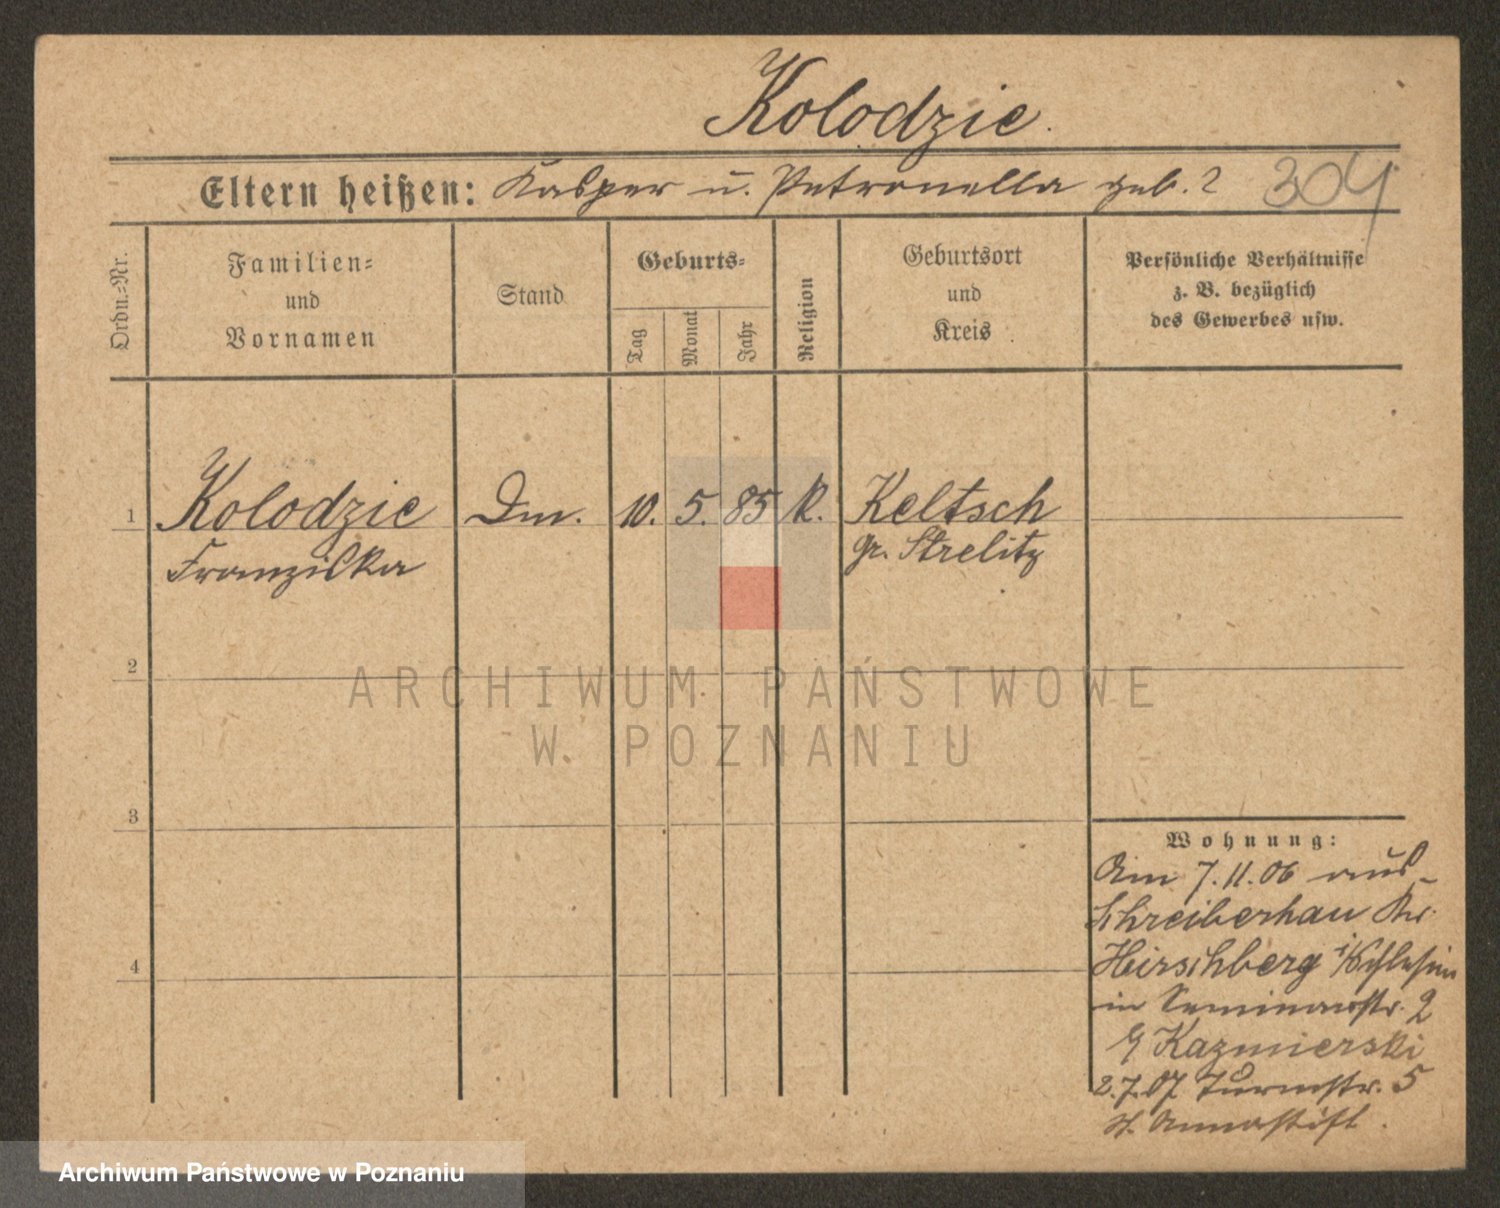 Kolodzie.
Eltern heißen: Kasper u. Petronella geb. ?
304
Ordn.-Nr.
Familien-
und
Vornamen
Stand
Geburts-
Tag
Monat
Jahr
Religion
Geburtsort
und
Kreis
Persönliche Verhältnisse
z. B. bezüglich
des Gewerbes usw.
1 Kolodzie Dm. 10. 5. 85 K. Keltsch
Franziska gr. Strelitz
2
3
4
Wohnung:
Am 7.11.06 aus
Schreiberhau Kr.
Hirschberg i/Schlesien
in Seminarstr. 2
Kazmierski
2.7.07 Turmstr. 5
St. Annastift.
ARCHIWUM PAŃSTWOWE
W POZNANIU
Archiwum Państwowe w Poznaniu